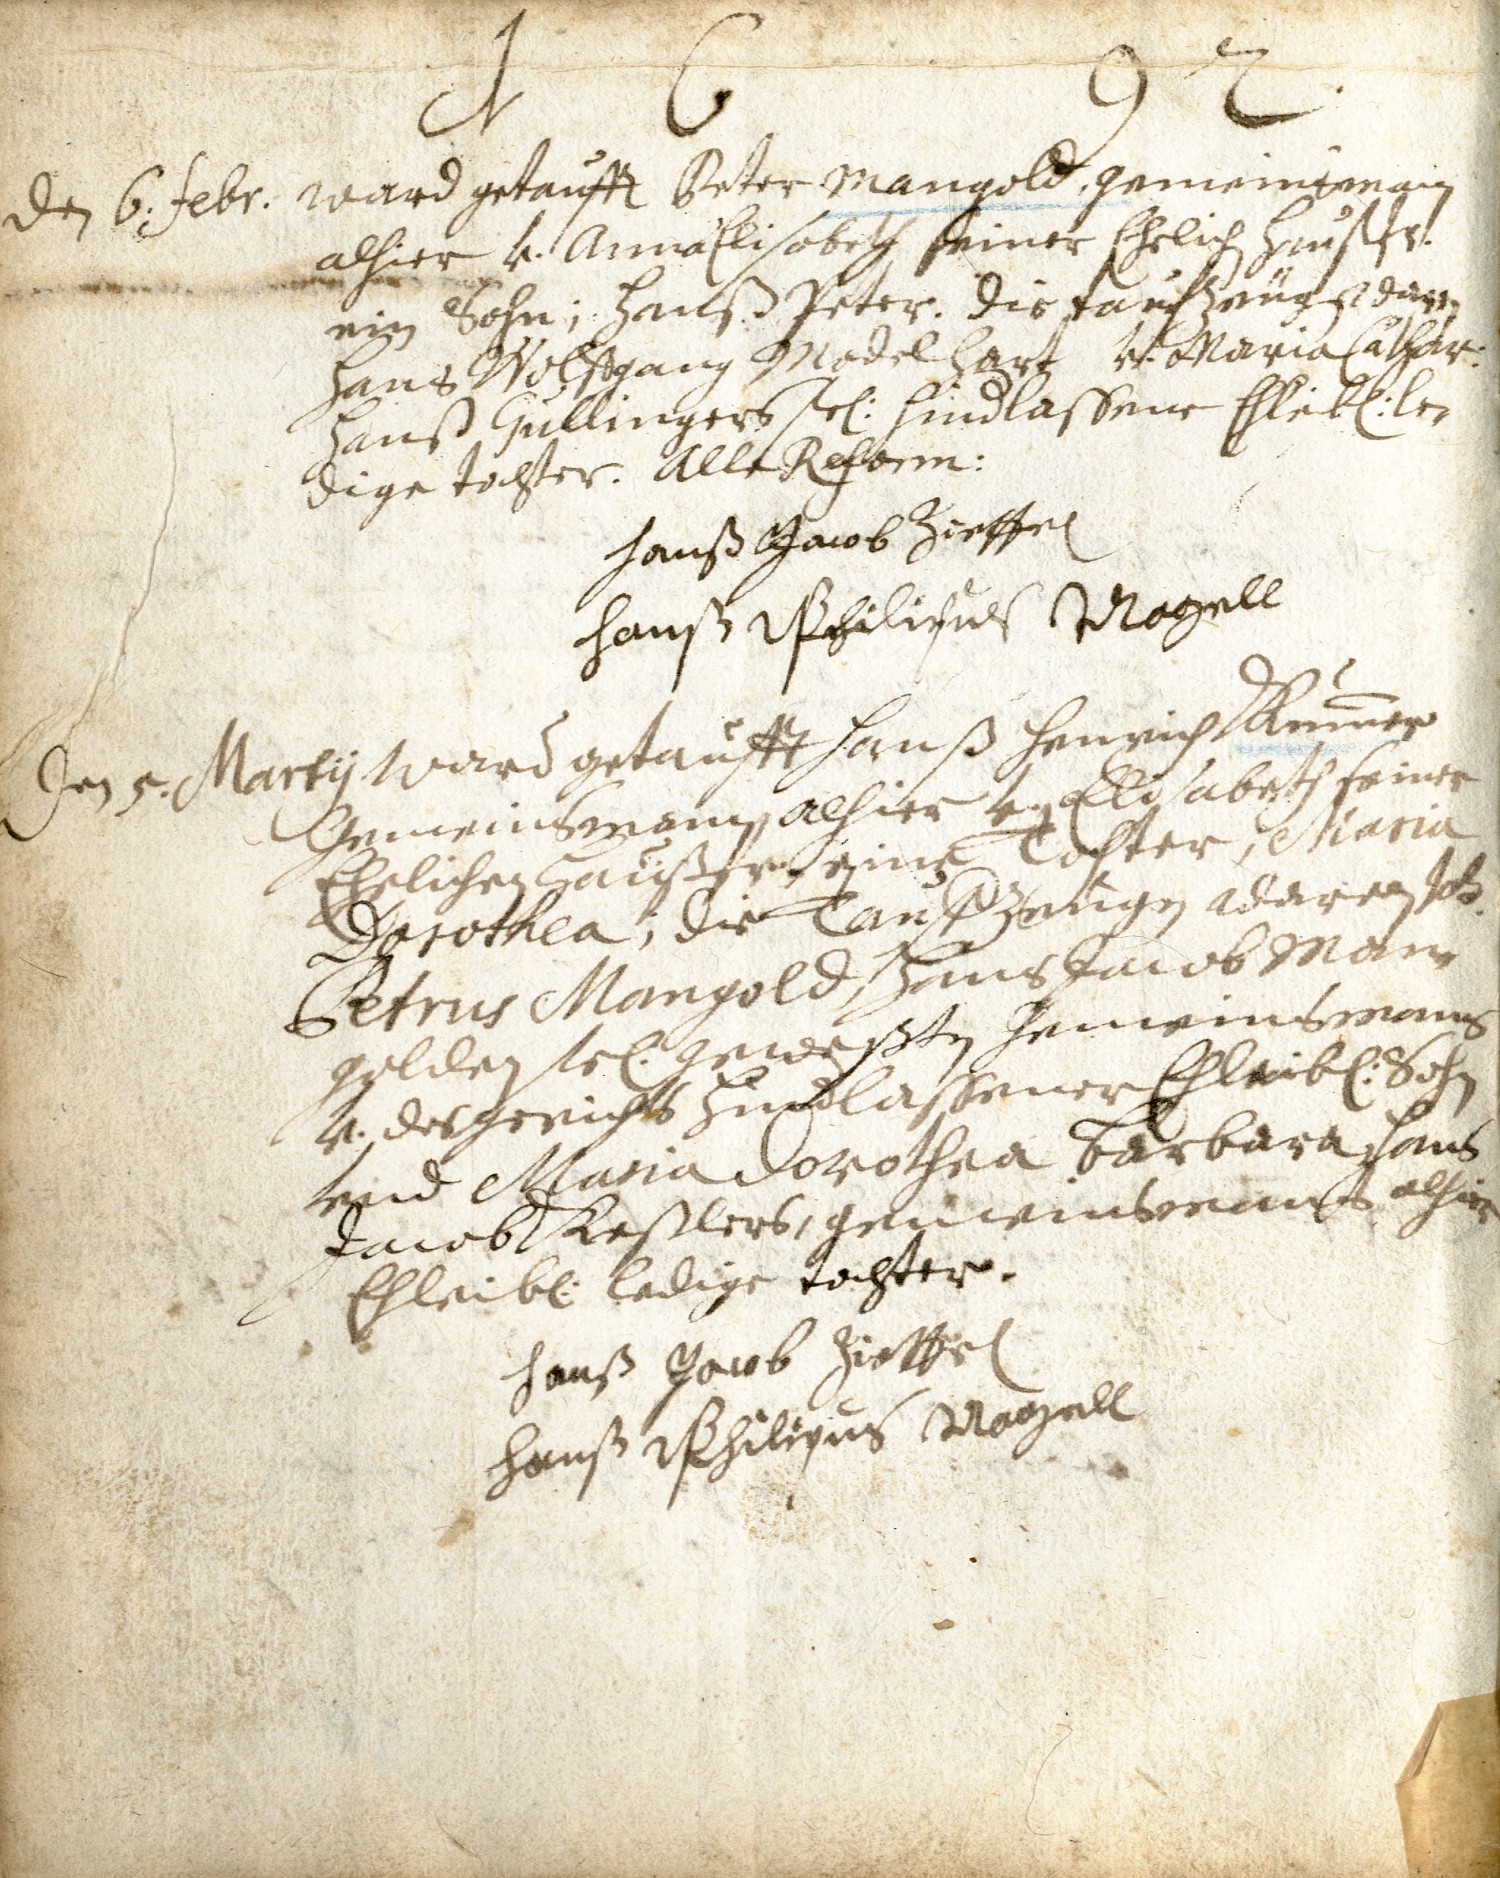 1692.
den 6. febr. ward getaufft Peter Mangold, gemeinsman
alhier v. Anna Elisabeth seiner Ehelich haußfr.
ein Sohn; Hanß Peter. die taufzeugen
Hans Wolfgang Model Hart v. Maria Cathar:
Hanß Gullingers sel: hindlassene Ehleibl: le-
dige tochter. Alle Reform:
Hanß Jacob Zieffel
Hanß Philipus Nagell
Den 5. Martij ward getaufft Hanß Henrich
Gemeinsmann alhier v. Elisabeth seiner
Ehelichen Haußfr. eine Tochter, Maria
Dorothea; die Taufzeugen waren
Petrus Mangold, Hans Jacob Man-
golden sel. gemeinsmans
v. des gerichts hindlassener Ehleibl: Sohn
vnd Maria Dorothea Barbara Hans
Jacob Keßlers, gemeinsmans alhier
Ehleibl: ledige tochter.
Hanß Jacob Zieffel
Hanß Philipus Nagell